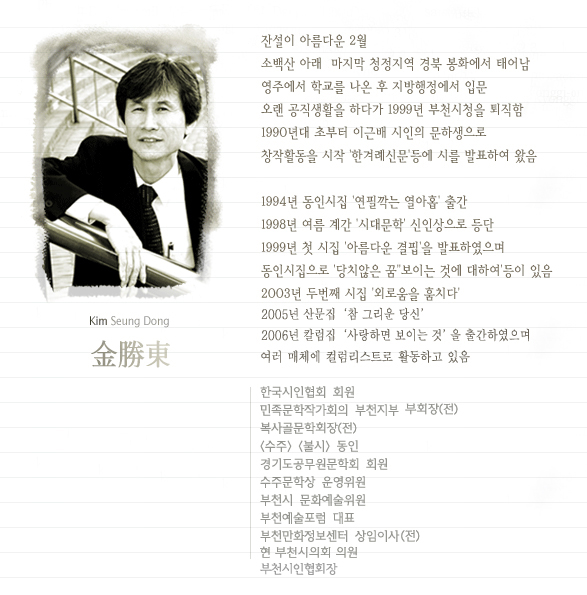 잔설이 아름다운 2월
소백산 아래 마지막 청정지역 경북 봉화에서 태어남
영주에서 학교를 나온 후 지방행정에서 입문
오랜 공직생활을 하다가 1999년 부천시청을 퇴직함
1990년대 초부터 이근배 시인의 문하생으로
창작활동을 시작 '한겨레신문'등에 시를 발표하여 왔음
1994년 동인시집 '연필깍는 열아홉' 출간
1998년 여름 계간 '시대문학' 신인상으로 등단
1999년 첫 시집 '아름다운 결핍'을 발표하였으며
동인시집으로 '당치않은 꿈''보이는 것에 대하여'등이 있음
2003년 두번째 시집 '외로움을 훔치다'
2005년 산문집 ‘참 그리운 당신’
2006년 칼럼집 ‘사랑하면 보이는 것’ 을 출간하였으며
여러 매체에 컬럼리스트로 활동하고 있음
Kim Seung Dong
金勝東
한국시인협회 회원
민족문학작가회의 부천지부 부회장(전)
복사골문학회장(전)
<수주> <불시> 동인
경기도공무원문학회 회원
수주문학상 운영위원
부천시 문화예술위원
부천예술포럼 대표
부천만화정보센터 상임이사(전)
현 부천시의회 의원
부천시인협회장